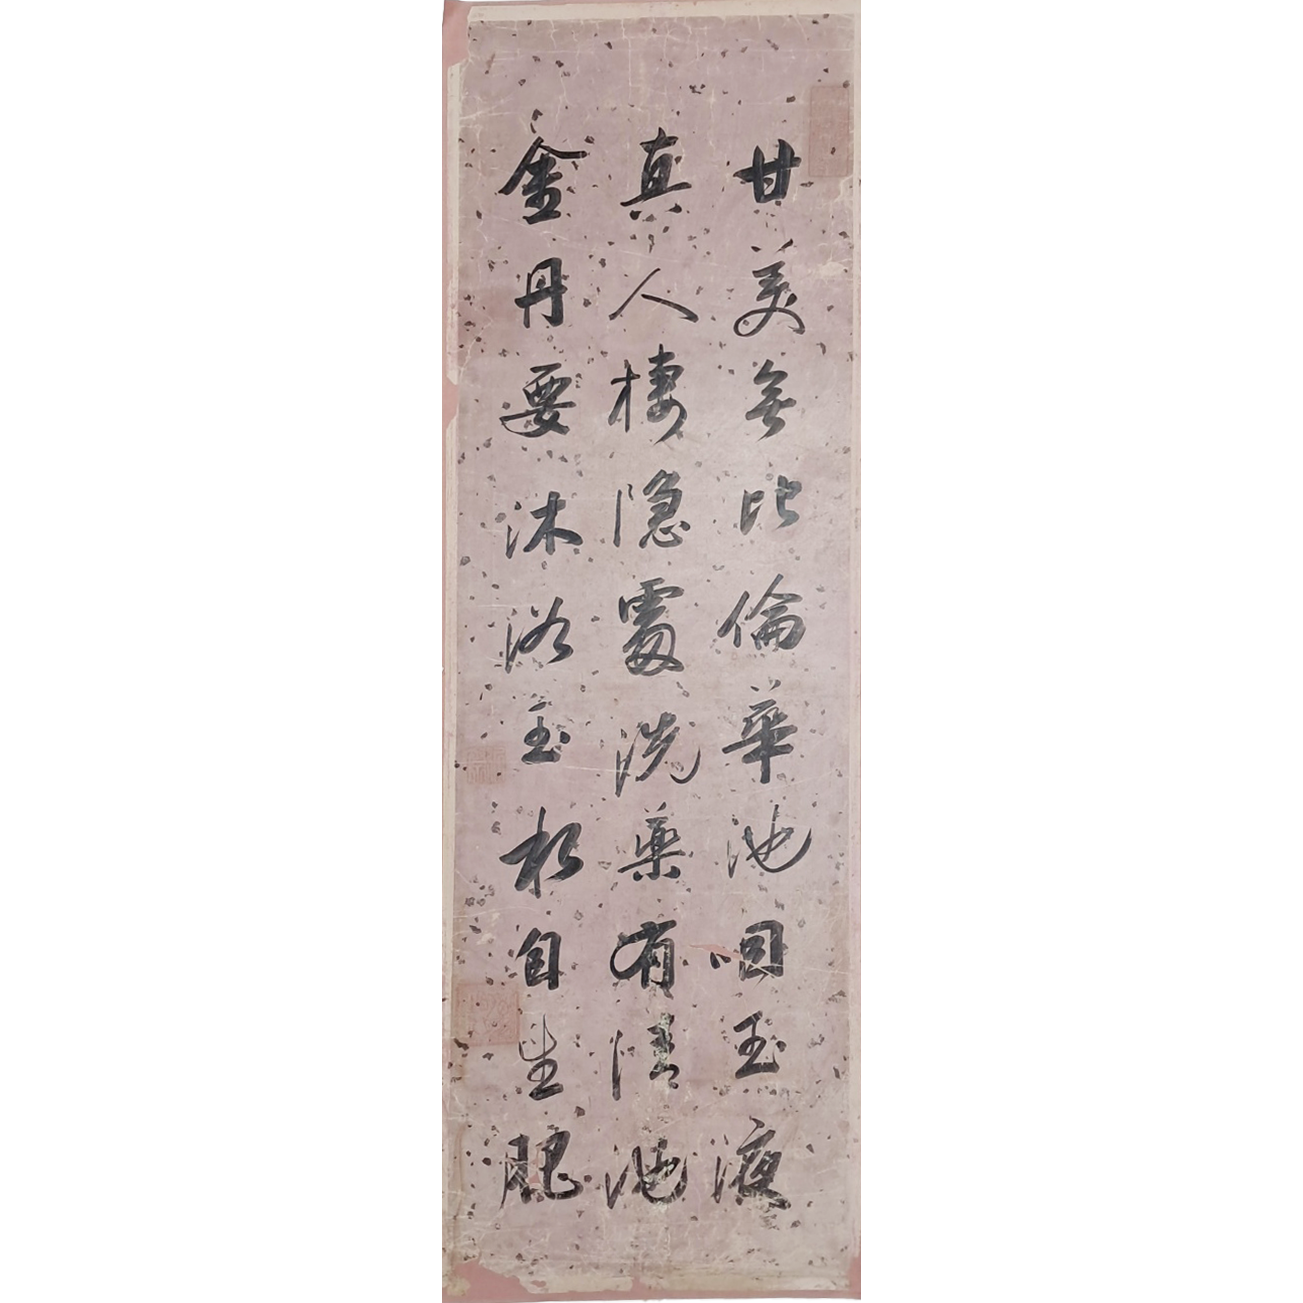 甘美無比倫華池咽玉液
真人棲隱處洗藥有清池
金丹要沐浴玉札自生肥